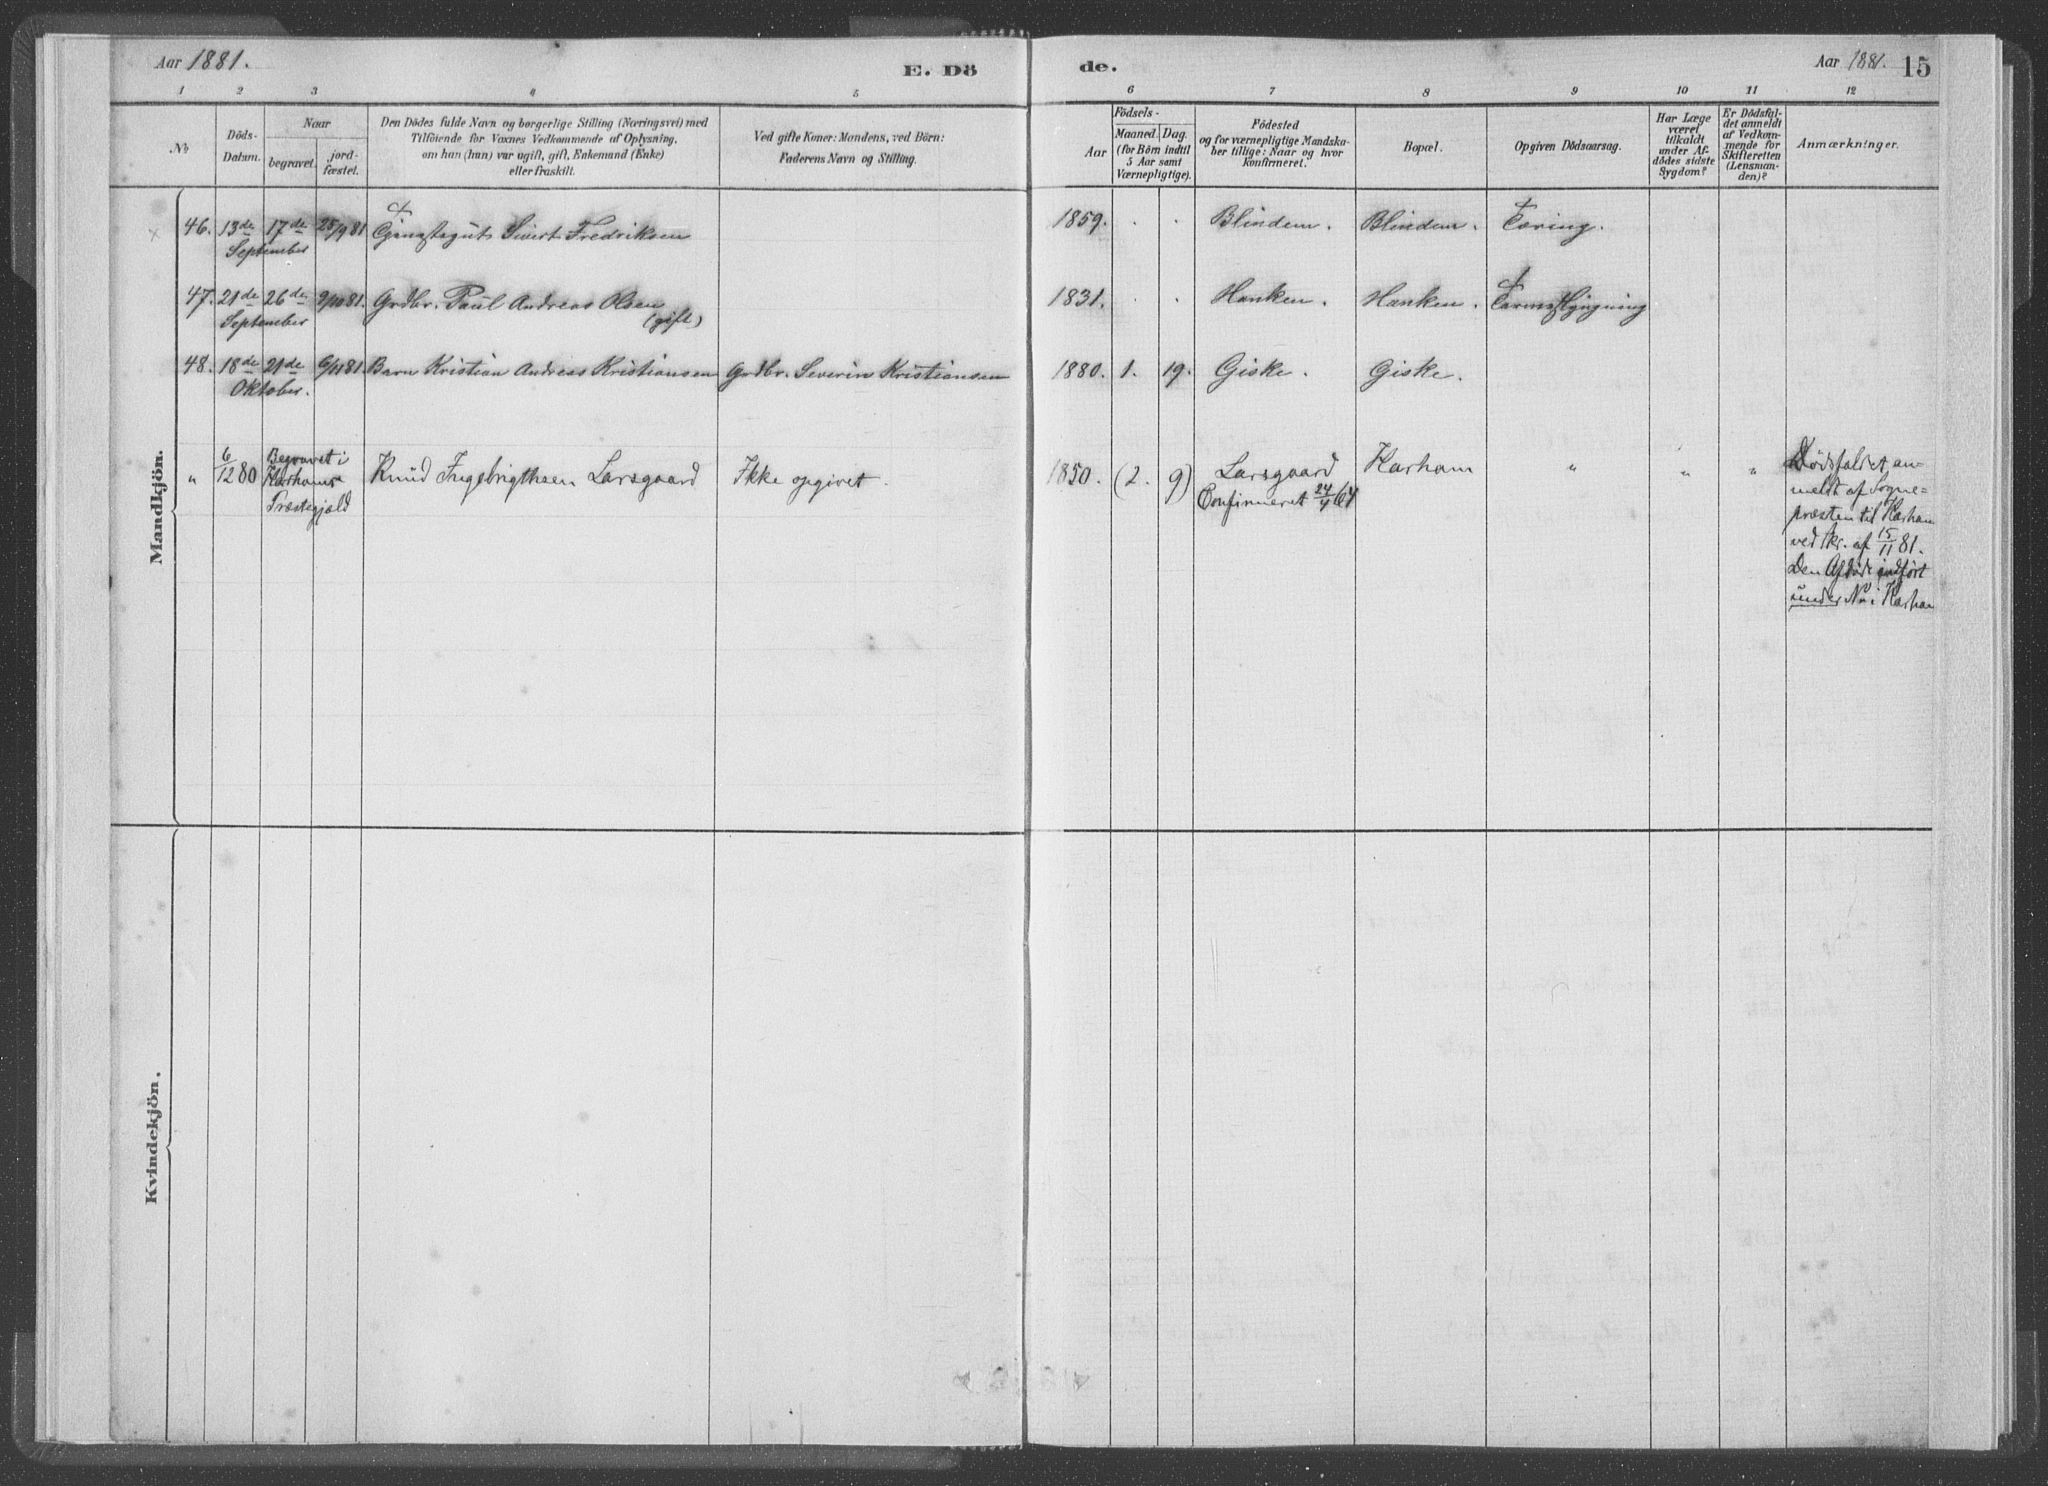 Aar 1881.
E. Dö
de.
Aar 1881.
15
1 2 3 4 5 6 7 8 9 10 11 12
No
Döds-
Datum.
Naar
begravet.
jord-
fæstet.
Den Dödes fulde Navn og borgerlige Stilling (Næringsvei) med
Tilföiende for Voxnes Vedkommende af Oplysning,
om han (hun) var ugift, gift, Enkemand (Enke)
eller fraskilt.
Ved gifte Koner: Mandens, ved Börn:
Faderens Navn og Stilling.
Födsels-
Aar
Maaned. Dag.
(for Börn indtil
5 Aar samt
Værnepligtige).
Födested
og for værnepligtige Mandska-
ber tillige: Naar og hvor
konfirmeret.
Bopæl.
Opgiven Dödsaarsag.
Har Læge
været
tilkaldt
under Af-
dödes sidste
Sygdom?
Er Dödsfal-
det anmeldt
af Vedkom-
mende for
Skifteretten
(Lensman-
den)?
Anmærkninger.
Mandkjön.
46. 13de September 17de 25/9 81 Tjenestegut Sivert Fredriksen 1859. Blindem. Blindem. Tæring.
47. 21de September 26de 9/10 81. Grdbr. Paul Andreas Olsen (gift) 1831. Hanken. Hanken. Tarmslyngning
48. 18de Oktober. 21de 6/11 81. Barn Kristian Andreas Kristiansen Grdbr. Severin Kristiansen 1880. 1. 19. Giske. Giske.
" 6/12 80 Begravet i Harhams Præstegjæld Knud Ingebrigtsen Larsgaard Ikke opgivet. 1850. (2. 9) Larsgaard Confirmeret 24/4 64 Harham " " "
Dödsfaldet an-
meldt af Sogne-
præsten til Harham
ved skr. af 15/11 81.
Den Afdöde indfört
under No i Harham
Kvindekjön.